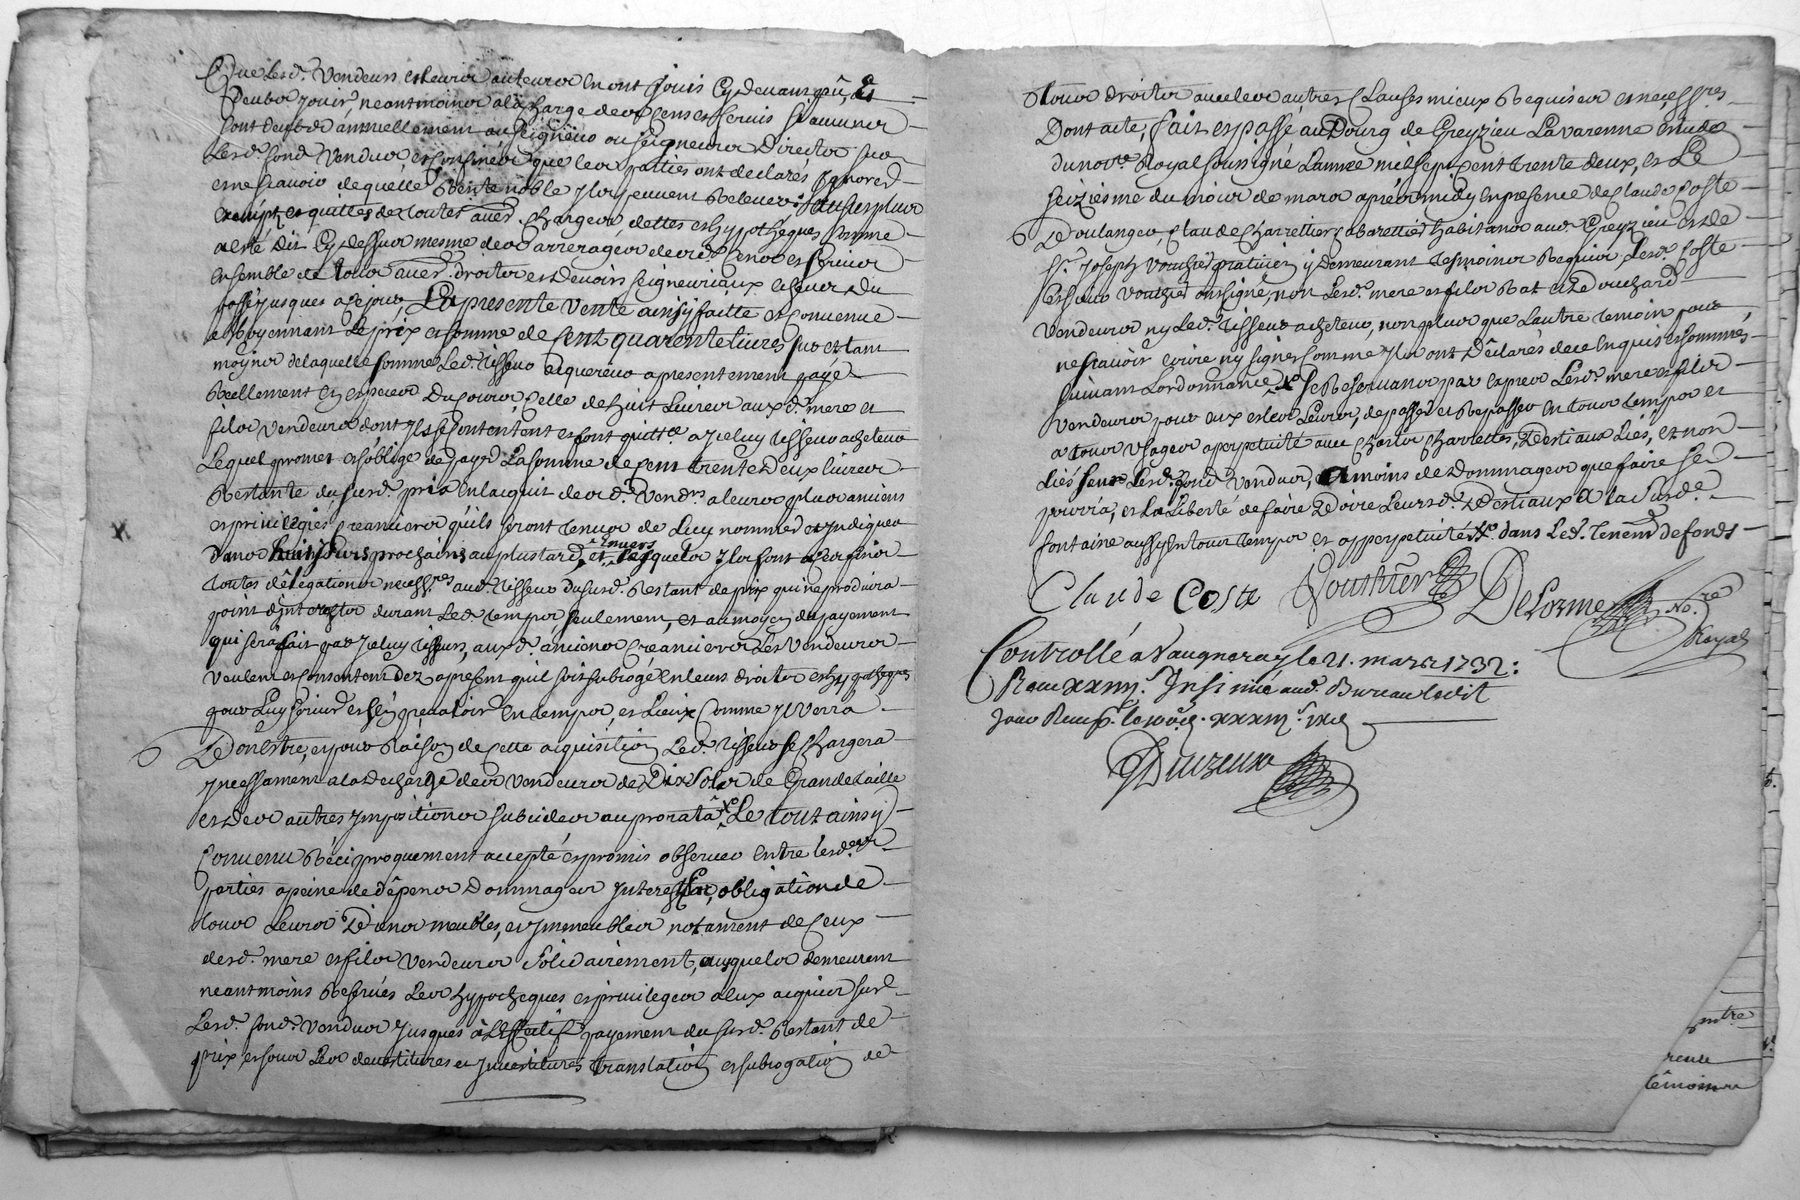 Que lesd. vendeurs et leurs auteurs en ont joüis cydevant pû, et
deub jouir, neantmoins a la charge des cens et servis si aucuns
sont deubs annuellement au seigneur ou seigneurs directs sur
lesd. fond vendus et confinés que les parties ont declarés ignorer
et ne scavoir de quelle rente noble ils peuvent relever: au surplus
exempt, et quittes de toutes autres charges, dettes et hypotheques comme
a esté dit cydessus mesme des arrerages desd. cens et servis
ensemble de tous autres droits et devoirs seigneuriaux escheus du
passé jusques a ce jour, La presente vente ainsy faitte et convenue
et moyennant le prix et somme de cent quarente livres sur et tant
moins de laquelle somme led. Tisseur acquereur a presentement payé
reellement en especes du cours, celle de huit livres auxd. mere et
fils vendeurs dont ils se contentent et font quitte a iceluy Tisseur acheteur
Lequel promet et s'oblige de payer la somme de cent trente deux livres
restante du susd. prix en l'acquit desd. vendrs a leurs plus anciens
et privilegiés creanciers qu'ils seront tenus de luy nommer et indiquer
dans huit jours prochains au plus tard, et envers lesquels ils font a ces fins
toutes délégations necessres aud. Tisseur du susd. restant de prix qui ne produira
point d'interests durant led. temps seulement, et au moyen du payement
qui sera fait par iceluy Tisseur, auxd. anciens creanciers les vendeurs
veulent et consentent dez a present qu'il soit subrogé en leurs droits et hypotheques
pour luy servir et s'en prevaloir en temps, et lieux comme il verra
De oultre, et pour raison de cette acquisition led. Tisseur se chargera
incessament a la decharge des vendeurs de dix sols de grande taille
et des autres impositions subsides au prorata Le tout ainsy
convenu reciproquement accepté et promis observer entre lesd.
parties a peine de dépens dommages interest, obligation de
tous leurs biens meubles, et immeubles, notament de ceux
desd. mere et fils vendeurs solidairement, auxquels demeurent
neantmoins reservés les hypotheques et privileges a eux acquis sur
lesd. fond. vendus jusques à l'effectif payement du susd. restant de
prix, et sous les devestitures et investitures translation et subrogation de
tous droits avec les autres clauses mieux requises et necessres
Dont acte, fait et passé au Bourg de Greyzieu Lavarenne etude
du notre Royal soussigné l'année mil sept cent trente deux, et le
seizieme du mois de mars aprés midy en presence de Claude Coste
Boulanger, Claude Charrettier cabarettier habitans aud. Greyzieu et de
Sr. Joseph Vouthier praticien y demeurant tesmoins requis, led. Coste
et led. Vouthier ont signé, non lesd. mere et fils Bat et Bouchard
vendeurs ny led. Tisseur acheteur, non plus que l'autre temoin pour
ne scavoir ecrire ny signer comme ils ont déclarés de ce enquis et sommés
suivant l'ordonnance xo se reservants par exprés lesd. mere et fils
vendeurs pour eux et les leurs, de passer et repasser en tous temps et
a tous usages a perpetuité avec chars charrettes, bestiaux liés, et non
liés sur lesd. fond vendus, a moins de dommages que faire se
pourra, et la liberté de faire boire leursd. bestiaux a la susd.
fontaine aussy en tous temps et a perpetuité xo dans led. tenemt de fonds
Claude Coste Vouthier Delorme No.re
Royal
Controllé a Vaugneray le 21. mars 1732:
Reçu xxiiij s. Insinué aud. Bureau ledit
jour
entre
rente
témoins